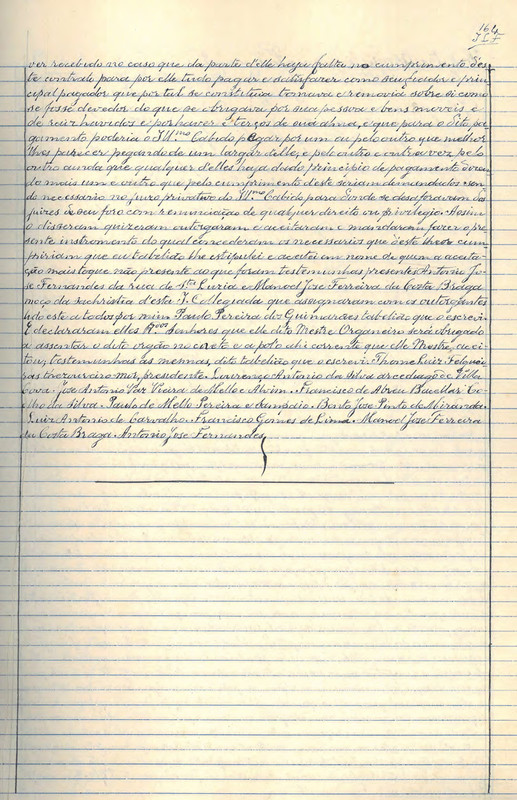 164
ver recebido no caso que da parte d'elle haja falta no cumprimento des-
te contrato para por elle tudo pagar e satisfazer como seu fiador e prin-
cipal pagador que por tal se constituia tomava e removia sobre si como
se fosse devedor do que se obrigava por sua pessoa e bens moveis e
de raiz havidos e por haver e terços de sua alma, e que para o dito pa-
gamento poderia o Ill.mo Cabido pegar por um ou pelo outro que melhor
lhes parecer pegando de um largar d'elle, e pelo outro e outra vez pelo
outro ainda que qualquer d'elles haja dado principio de pagamento
do mais um e outro que pelo cumprimento d'este seriam demandados sen-
do necessario no juro privativo do Ill.mo Cabido para d'onde se desaforavam
juizes de seu foro com renunciação de qualquer direito ou privilegio. Assim
o disseram quizeram outorgaram e aceitaram e mandaram fazer o pre-
sente instromento do qual concederam os necessarios que d'este theor cum-
priram que eu tabelião lhe estipulei e aceitei em nome de quem a aceita-
ção mais toque não presente ao que foram testemunhas presentes Antonio Jo-
se Fernandes da rua de Sta Luzia e Manoel Jose Ferreira da Costa Braga
moço da sachristia d'esta Collegiada que assignaram com os outorgantes
lido este a todos por mim Paulo Pereira de Guimarães tabelião que o escrevi.
E declararam elles Senhores que elle dito Mestre Organeiro será obrigado
a assentar o dito orgão no corete e a pol o corrente que elle Mestre, acei-
tou, testemunhas as mesmas, dito tabelião que o escrevi. Thome Luiz Felguei-
ras thezoureiro-mor, presidente. Lourenço Antonio da Silva arcediago de Villa
Cova. Jose Antonio Paz Vieira de Mello e Alvim. Francisco de Abreu Bacellar Co-
elho da Silva. Paulo de Mello Pereira e Sampaio. Bento Jose Pinto de Miranda.
Luiz Antonio de Carvalho. Francisco Gomes de Lima. Manoel Jose Ferreira
da Costa Braga. Antonio Jose Fernandes